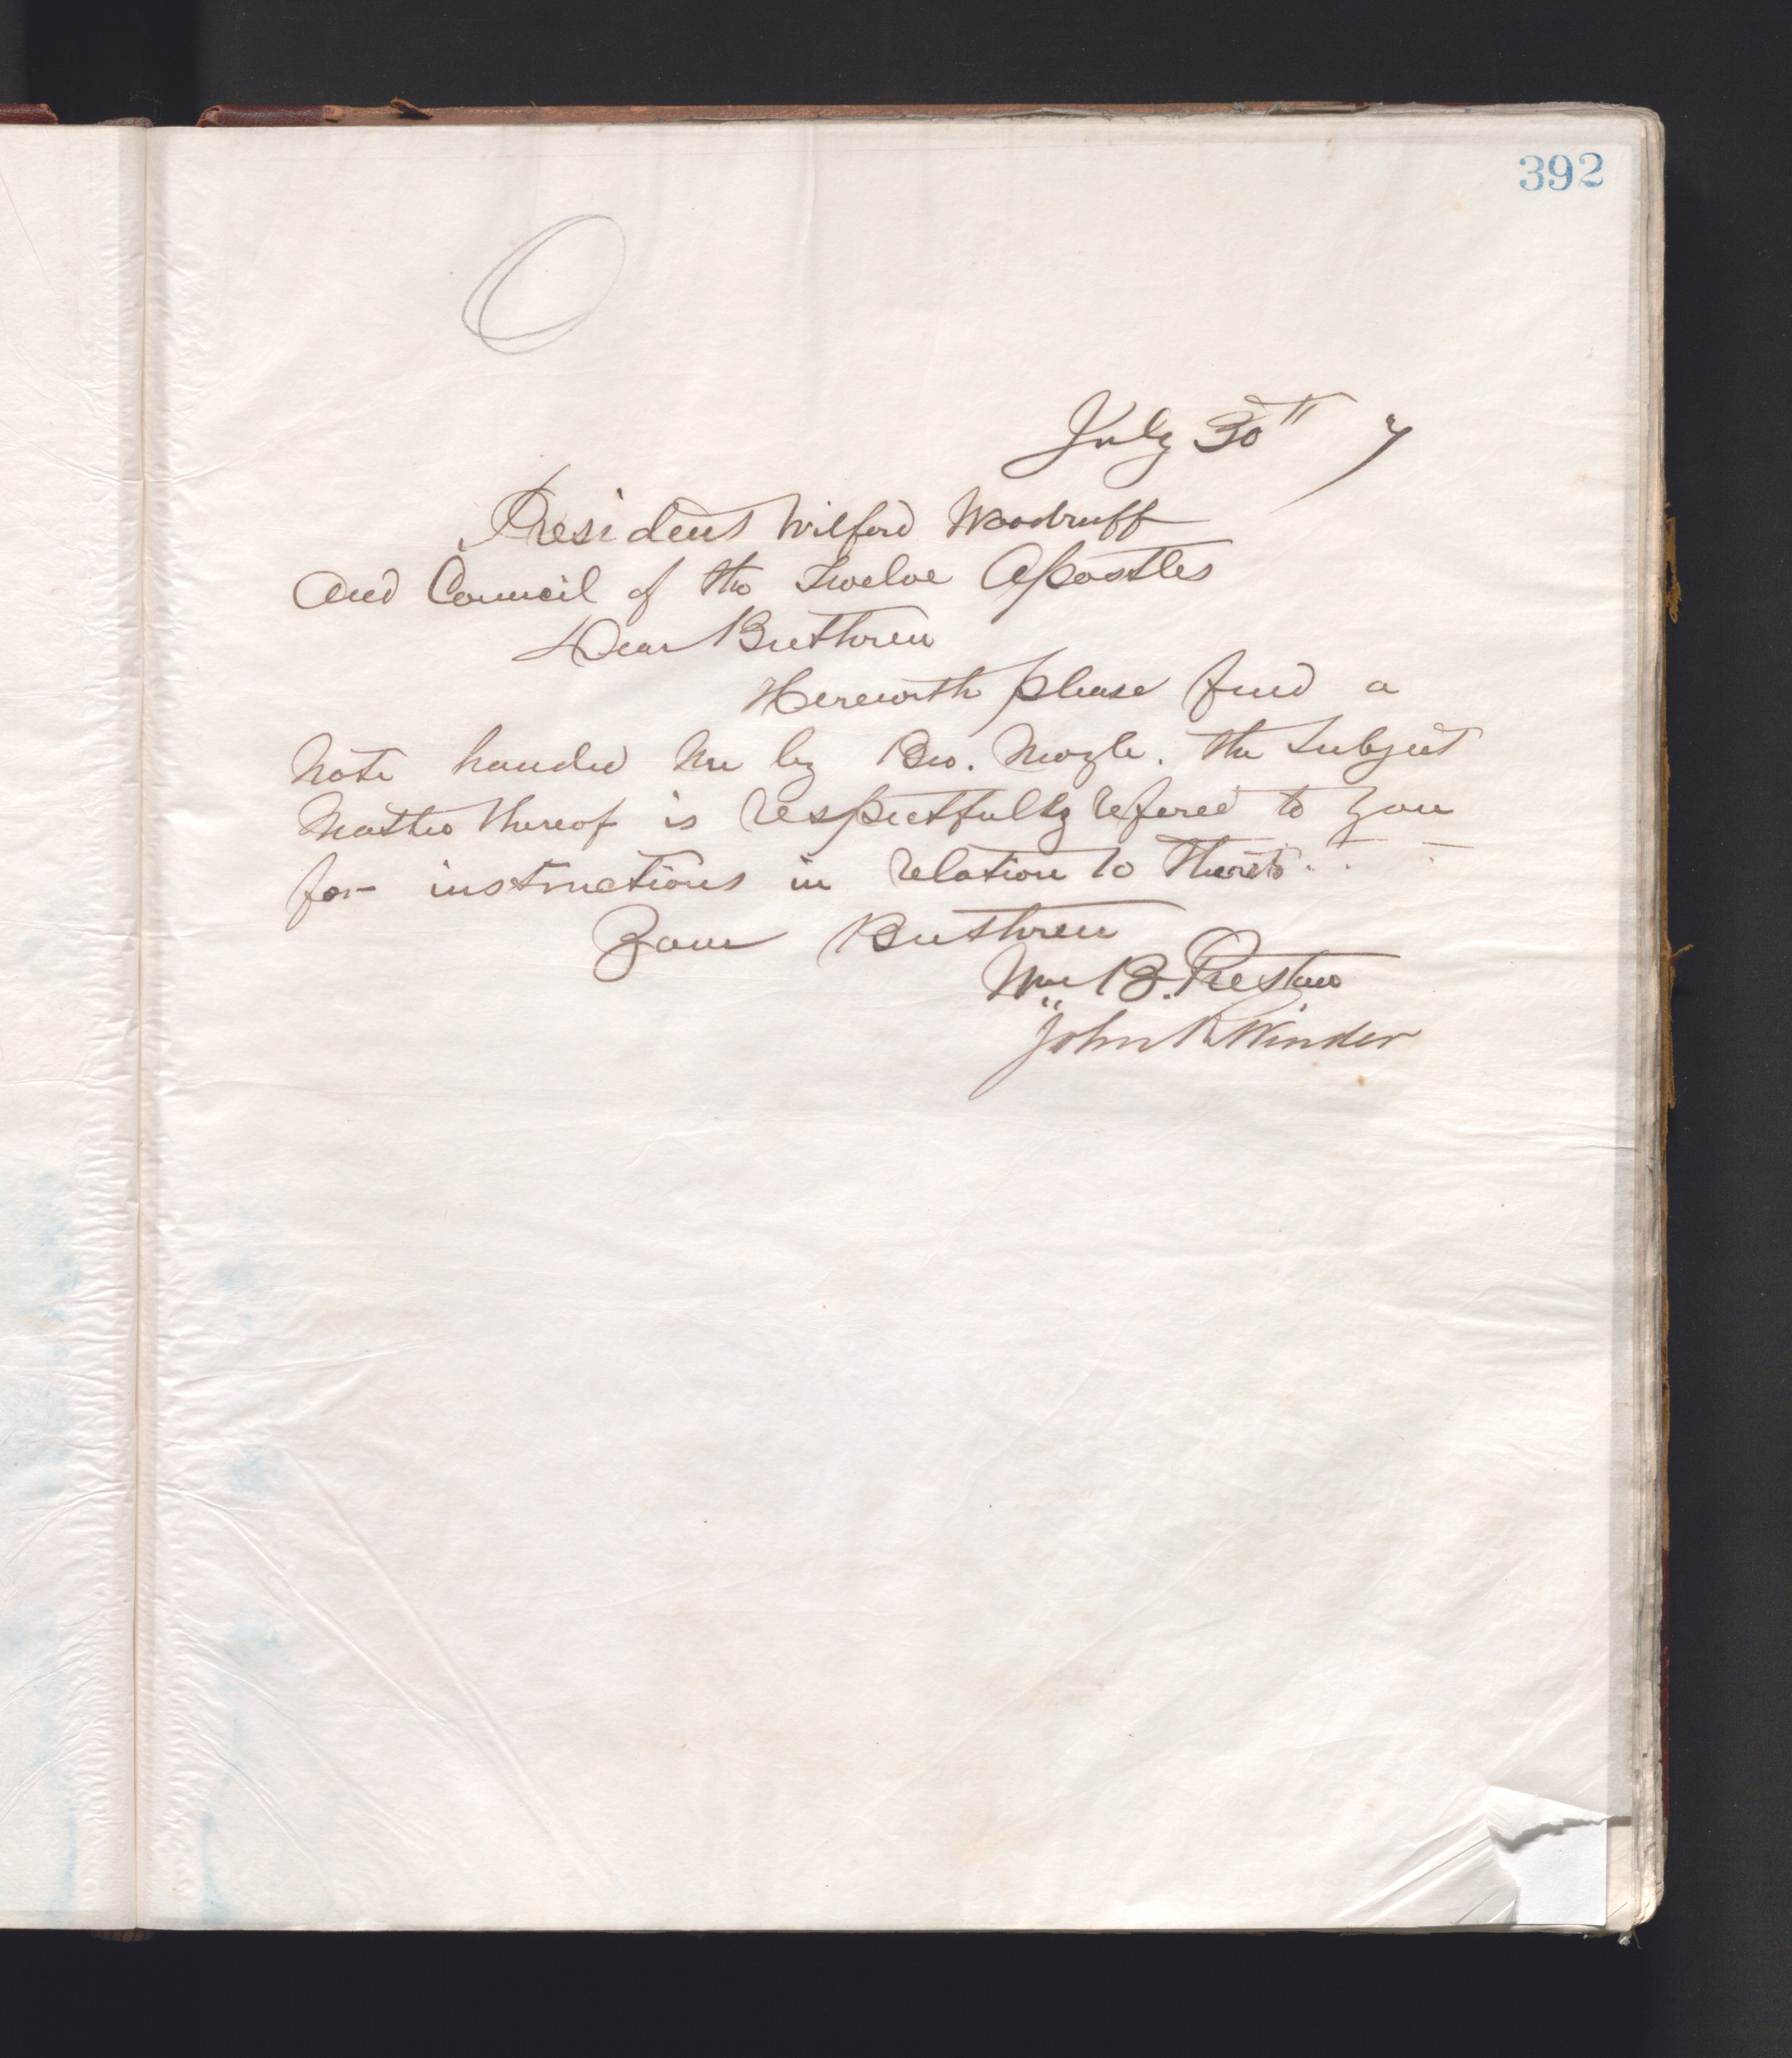 392
July 30th 7
President Wilford Woodruff
And Council of the Twelve Apostles
Dear Brethren
Herewith please find a
Note handed me by Bro. the Subject
Matter thereof is respectfully refered to you
for instructions in relation to thereto.
Your Brethren
Wm B. Preston
John R Winder